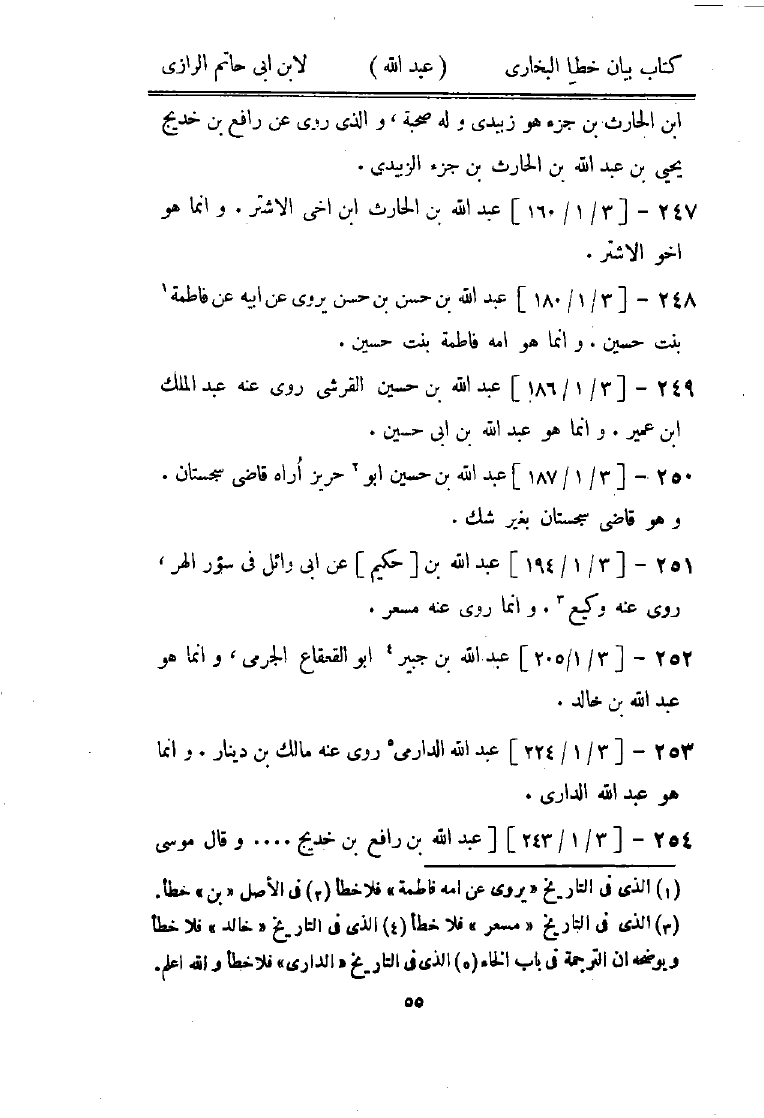 كتاب بيان خطإ البخارى ( عبد الله ) لابن ابى حاتم الرازى
ابن الحارث بن جزء هو زبيدى و له صحبة ، و الذى روى عن رافع بن خديج
يحيى بن عبد الله بن الحارث بن جزء الزبيدى .
٢٤٧ – [ ٣/ ١/ ١٦٠ ] عبد الله بن الحارث ابن اخى الاشتر . و انما هو
اخو الاشتر .
٢٤٨ – [ ٣/ ١/ ١٨٠ ] عبد الله بن حسن بن حسن يروى عن ابيه عن فاطمة ١
بنت حسين . و انما هو امه فاطمة بنت حسين .
٢٤٩ – [ ٣/ ١/ ١٨٦ ] عبد الله بن حسين القرشى روى عنه عبد الملك
ابن عمير . و انما هو عبد الله بن ابى حسين .
٢٥٠ – [ ٣/ ١/ ١٨٧ ] عبد الله بن حسين ابو ٢ حريز أراه قاضى سجستان .
و هو قاضى سجستان بغير شك .
٢٥١ – [ ٣/ ١/ ١٩٤ ] عبد الله بن [ حكيم ] عن ابى وائل فى سؤر الهر ،
روى عنه وكيع ٣ . و انما روى عنه مسعر .
٢٥٢ – [ ٣/ ١/ ٢٠٥ ] عبد الله بن جبير ٤ ابو القعقاع الجرمى ، و انما هو
عبد الله بن خالد .
٢٥٣ – [ ٣/ ١/ ٢٢٤ ] عبد الله الدارمى ٥ روى عنه مالك بن دينار . و انما
هو عبد الله الدارى .
٢٥٤ – [ ٣/ ١/ ٢٤٣ ] [ عبد الله بن رافع بن خديج .... و قال موسى
(١) الذى فى التاريخ « يروى عن امه فاطمة » فلا خطأ (٢) فى الأصل « بن » خطأ.
(٣) الذى فى التاريخ « مسعر » فلا خطأ (٤) الذى فى التاريخ « خالد » فلا خطأ
و يوضحه ان الترجمة فى باب الخاء (٥) الذى فى التاريخ « الدارى » فلا خطأ و الله اعلم.
٥٥